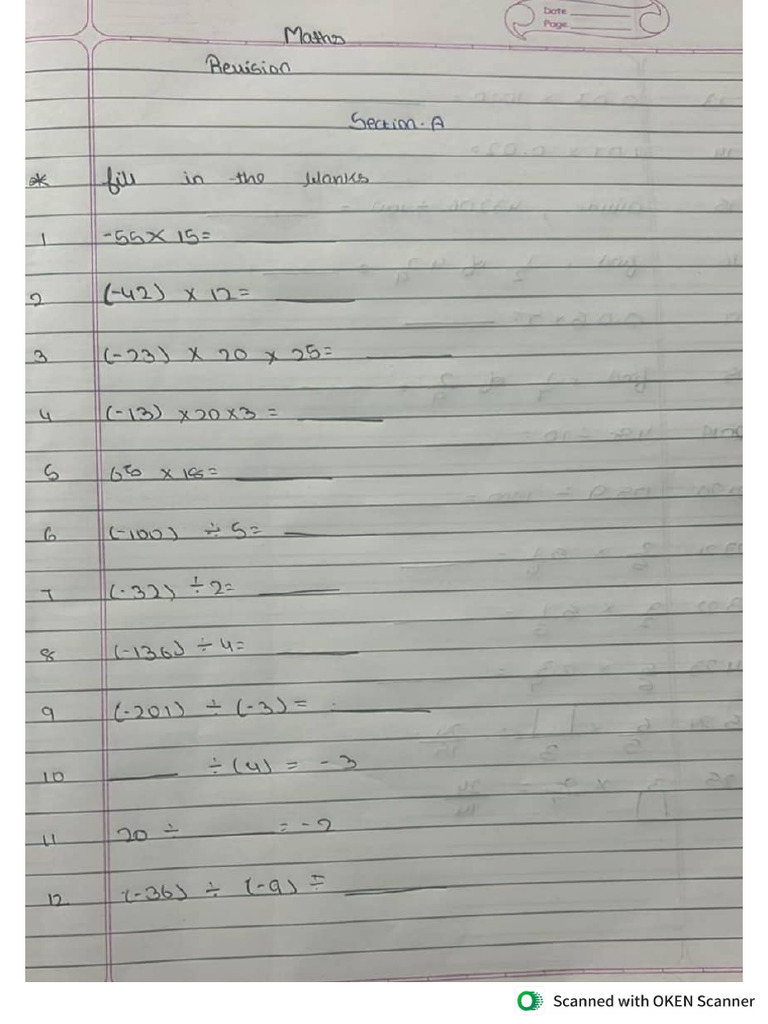 Date
Page
Maths
Revision
Section-A
* fill in the blanks
1 -55 × 15 = ____
2 (-42) × 12 = ____
3 (-23) × 20 × 25 = ____
4 (-13) × 20 × 3 = ____
5 65 × 15 = ____
6 (-100) ÷ 5 = ____
7 (-32) ÷ 2 = ____
8 (-136) ÷ 4 = ____
9 (-201) ÷ (-3) = ____
10 ____ ÷ (4) = -3
11 20 ÷ ____ = -2
12 (-36) ÷ (-9) = ____
Scanned with OKEN Scanner